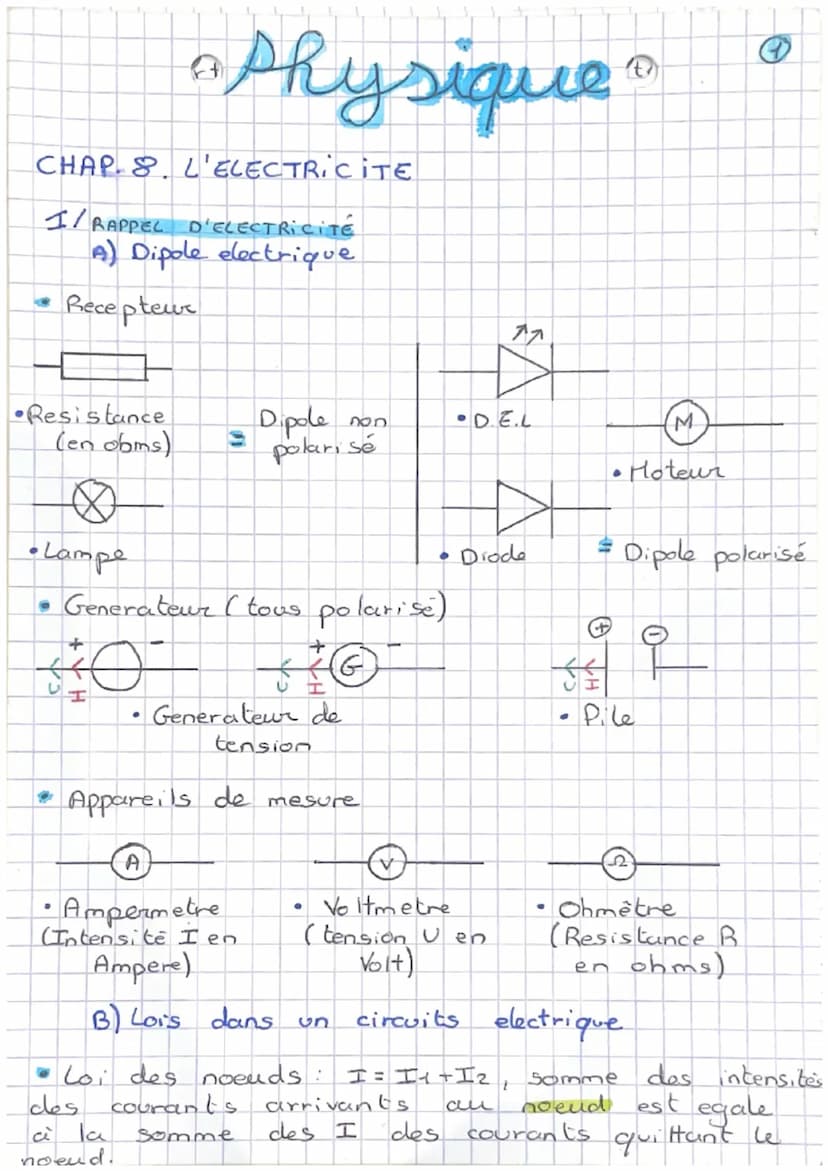 Physique
r+
t)
1
CHAP. 8. L'ELECTRiCiTE
I/ RAPPEL D'ELECTRiCiTÉ
A) Dipole electrique
Recepteur
• Resistance
(en ohms)
= Dipole non
polarisé
• D.E.L
M
• Moteur
• Lampe
• Diode
= Dipole polarisé
• Generateur (tous polarisé)
+ -
U I
+ G -
U I
+ -
U I
• Generateur de
tension
• Pile
• Appareils de mesure
A
V
Ω
• Ampermetre
(Intensité I en
Ampere)
• Voltmetre
(tension U en
Volt)
• Ohmètre
(Resistance R
en ohms)
B) Lois dans un circuits electrique
• Loi des noeuds : I = I1 + I2, somme des intensités
des courants arrivants au noeud est egale
à la somme des I des courants quittant le
noeud.